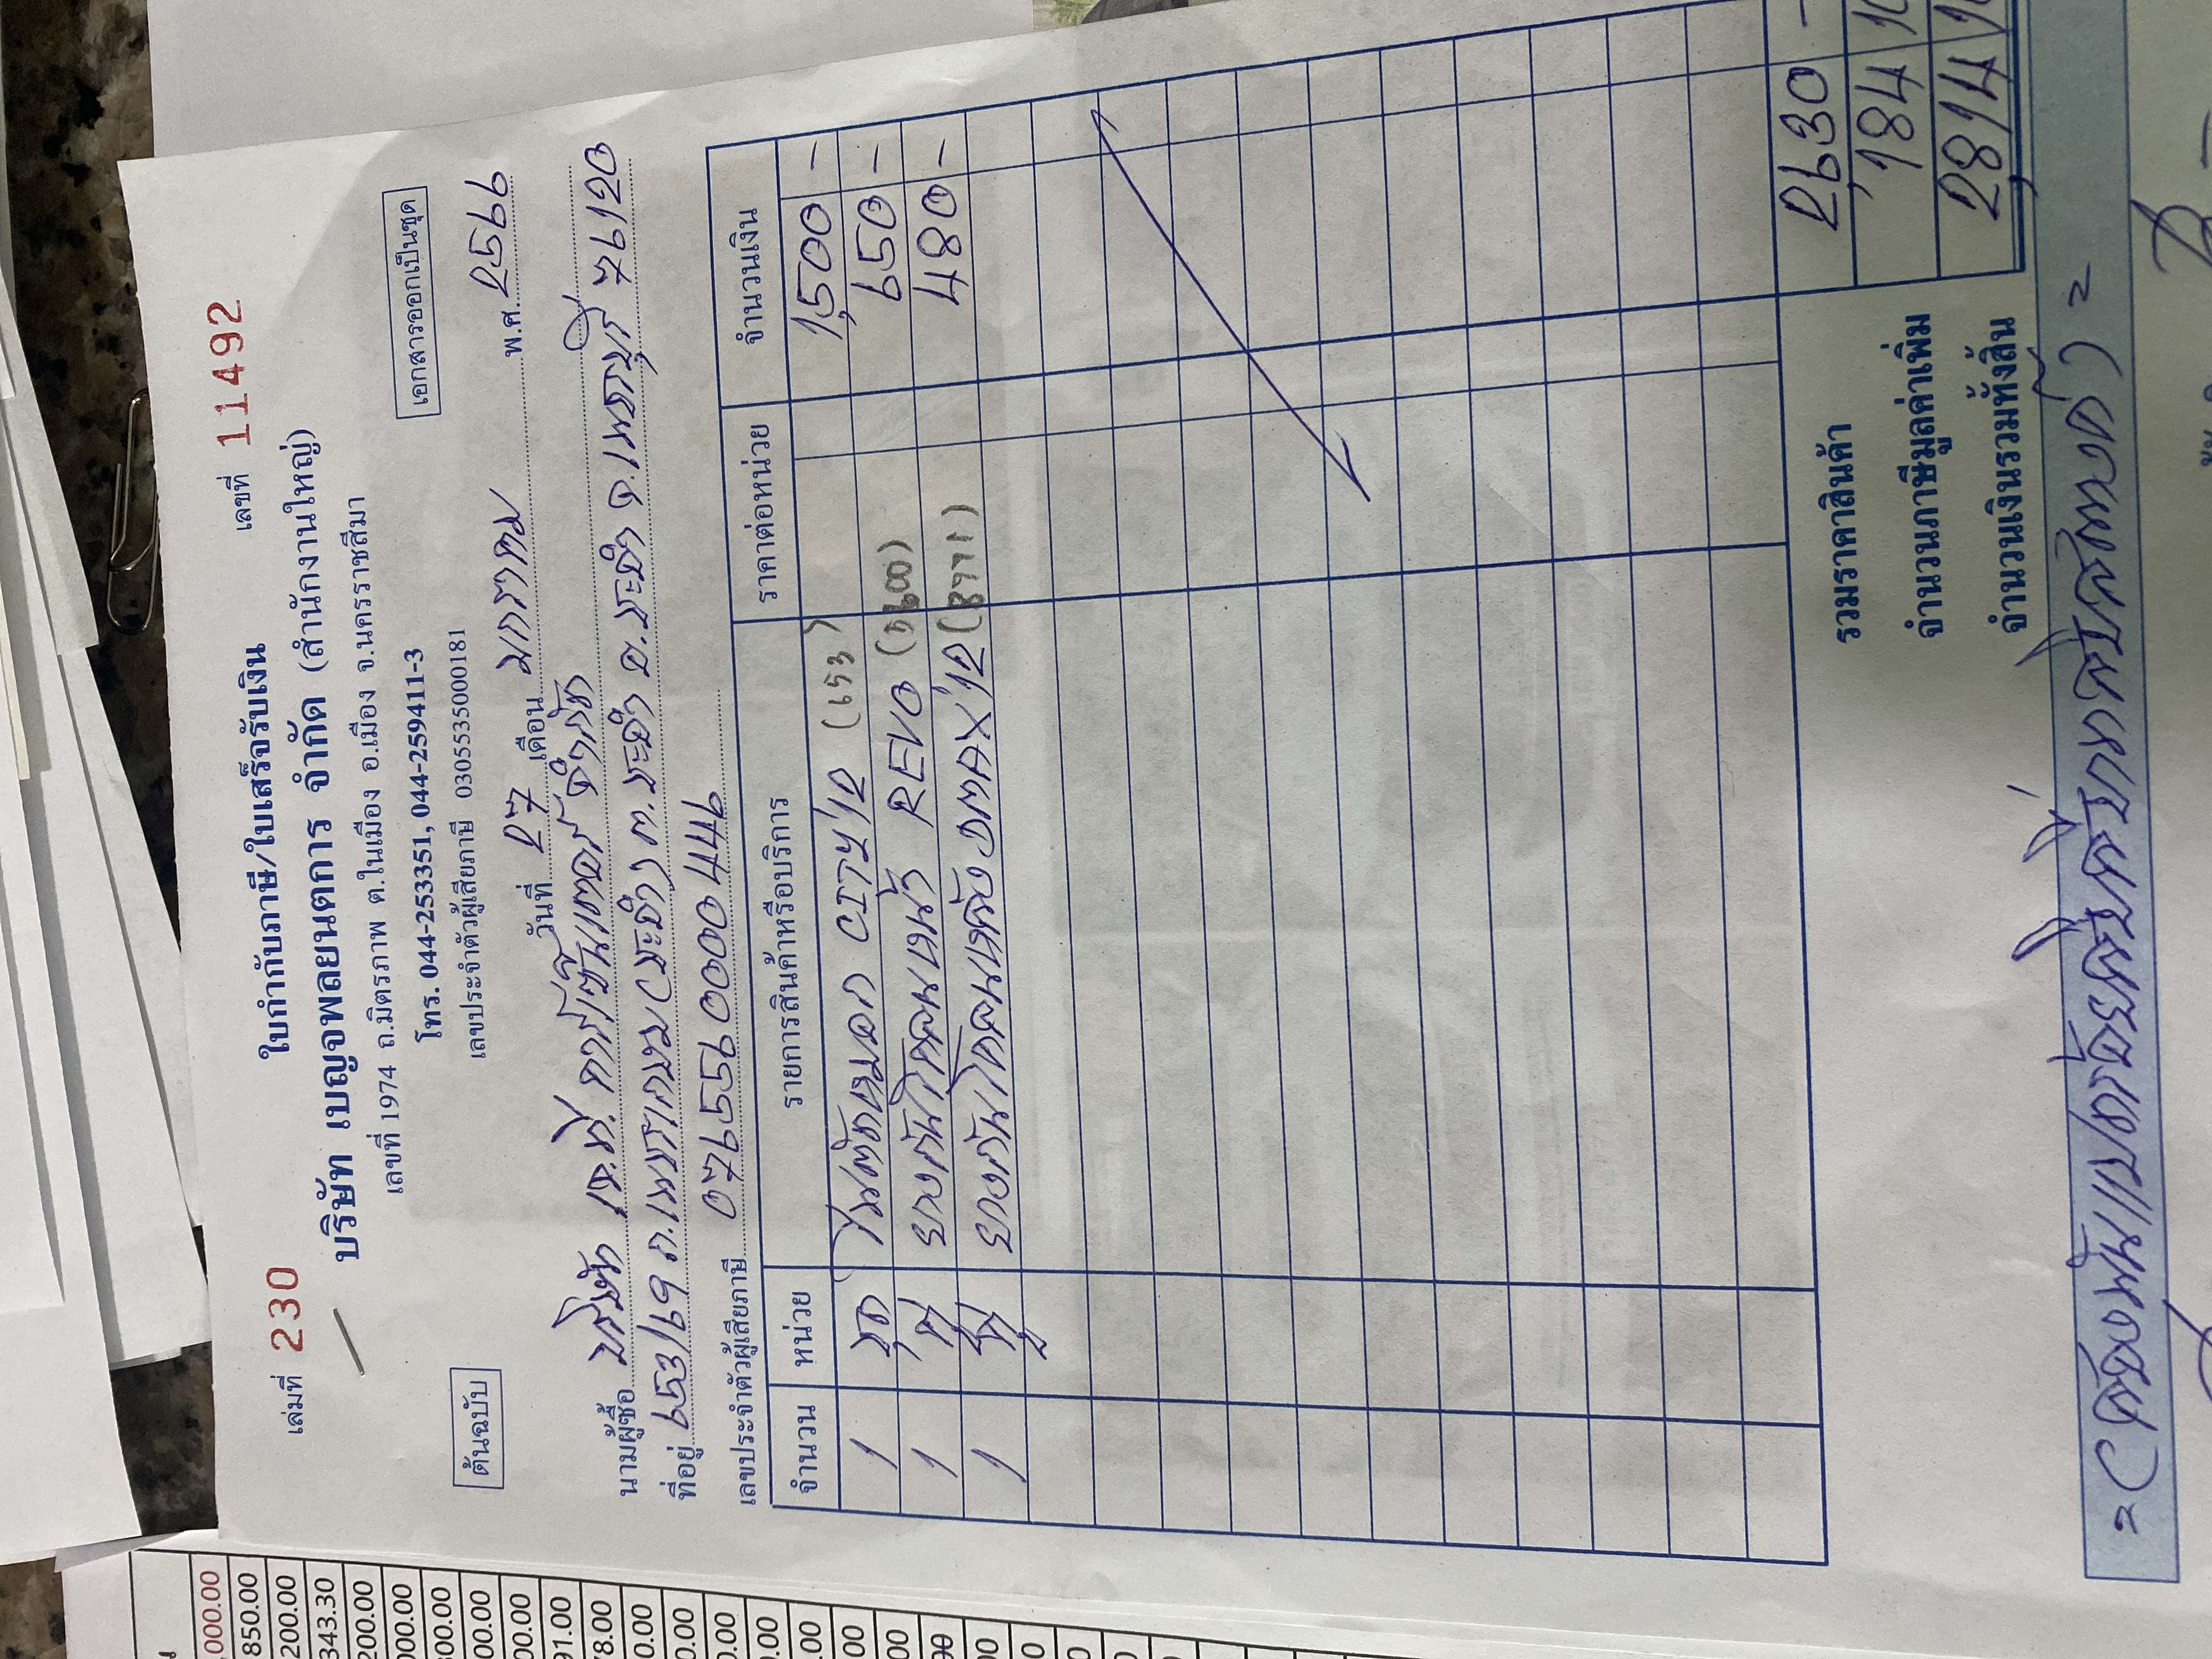 เล่มที่ 230 ใบกำกับภาษี/ใบเสร็จรับเงิน เลขที่ 11492
บริษัท เบญจพลยนตการ จำกัด (สำนักงานใหญ่)
เลขที่ 1974 ถ.มิตรภาพ ต.ในเมือง อ.เมือง จ.นครราชสีมา
โทร. 044-253351, 044-259411-3
ต้นฉบับ
เลขประจำตัวผู้เสียภาษี 0305535000181
เอกสารออกเป็นชุด
วันที่ 27 เดือน มกราคม พ.ศ. 2566
นามผู้ซื้อ บริษัท เจ.ที. คาร์เซ็นเตอร์ จำกัด
ที่อยู่ 953/69 ถ.เพชรเกษม (ชะอำ) ต.ชะอำ อ.ชะอำ จ.เพชรบุรี 76120
เลขประจำตัวผู้เสียภาษี 0765590000446
จำนวน หน่วย รายการสินค้าหรือบริการ ราคาต่อหน่วย จำนวนเงิน
1 ชุด ไฟตัดหมอก CITY'12 (653) 1,500 -
1 คู่ ยางกันโคลนหน้า REVO 650 -
1 คู่ ยางกันโคลนหลัง DMAX'12 480 -
รวมราคาสินค้า 2,630 -
จำนวนภาษีมูลค่าเพิ่ม 184
จำนวนเงินรวมทั้งสิ้น 2,814
=(สองพันแปดร้อยสิบสี่บาทสิบสตางค์)=
,000.00
850.00
200.00
343.30
200.00
000.00
91.00
78.00